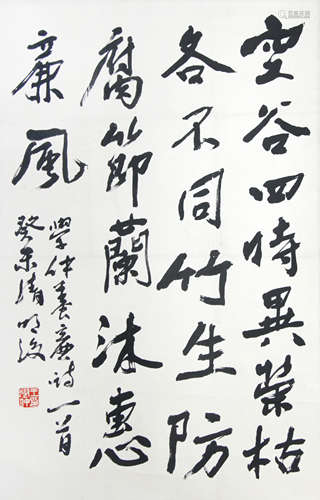 空谷四時異榮枯
各不同竹生防
腐節蘭沐惠
廉風
學仲養廉詩一首
癸未清明後